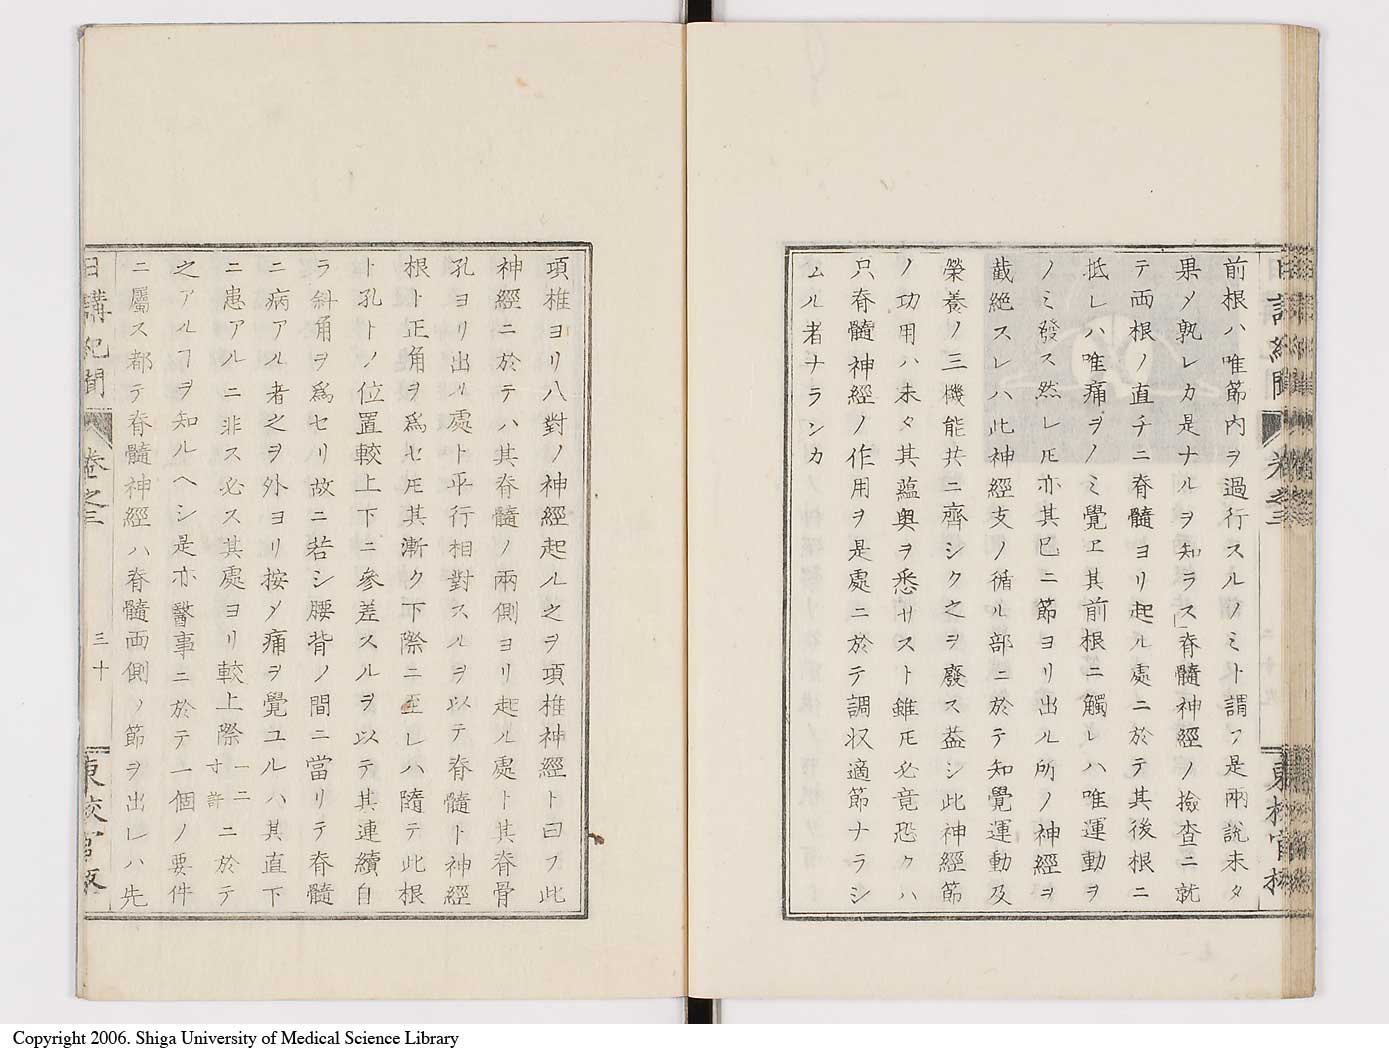 前根ハ唯節内ヲ過行スルノミト謂フ是兩説未タ
果〆孰レカ是ナルヲ知ラス脊髓神經ノ撿査ニ就
テ両根ノ直チニ脊髓ヨリ起ル處ニ於テ其後根ニ
抵レハ唯痛ヲノミ覺ヱ其前根ニ觸レハ唯運動ヲ
ノミ發ス然レ𪜈亦其已ニ節ヨリ出ル所ノ神經ヲ
截絶スレハ此神經支ノ循ル部ニ於テ知覺運動及
榮養ノ三機能共ニ齊シク之ヲ廢ス葢シ此神經節
ノ功用ハ未タ其蘊奥ヲ悉サスト雖𪜈必竟恐クハ
只脊髓神經ノ作用ヲ是處ニ於テ調収適節ナラシ
ムル者ナランカ
項椎ヨリ八對ノ神經起ル之ヲ項椎神經ト曰フ此
神經ニ於テハ其脊髓ノ兩側ヨリ起ル處ト其脊骨
孔ヨリ出ル處ト平行相對スルヲ以テ脊髓ト神經
根ト正角ヲ爲セ𪜈其漸ク下際ニ至レハ隨テ此根
ト孔トノ位置較上下ニ參差スルヲ以テ其連續自
ラ斜角ヲ爲セリ故ニ若シ腰背ノ間ニ當リテ脊髓
ニ病アル者之ヲ外ヨリ按〆痛ヲ覺ユルハ其直下
ニ患アルニ非ス必ス其處ヨリ較上際一二寸許ニ於テ
之アルヿヲ知ルヘシ是亦醫事ニ於テ一個ノ要件
ニ屬ス都テ脊髓神經ハ脊髓両側ノ節ヲ出レハ先
日講紀聞 卷之三 三十
Copyright 2006. Shiga University of Medical Science Library